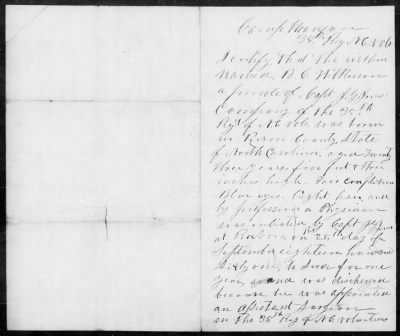 Camp
35th Reg N.C Vols
I certify that the within
named B. C. Wilkerson
a private of Capt J. G. Jones
Company of the 35th
Regt of N.C. Vols was born
in Person County State
of North Carolina, aged twenty
three years, five feet & three
inches high fair complexion
Blue eyes, light hair, and
by profession a Physician
was enlisted by Capt J G Jones
at on the 28th day of
September eighteen hundred
Sixty one to serve for one
year, and was discharged
because he was appointed
an assistant Surgeon
in the 35th Reg of N.C. Volunteers